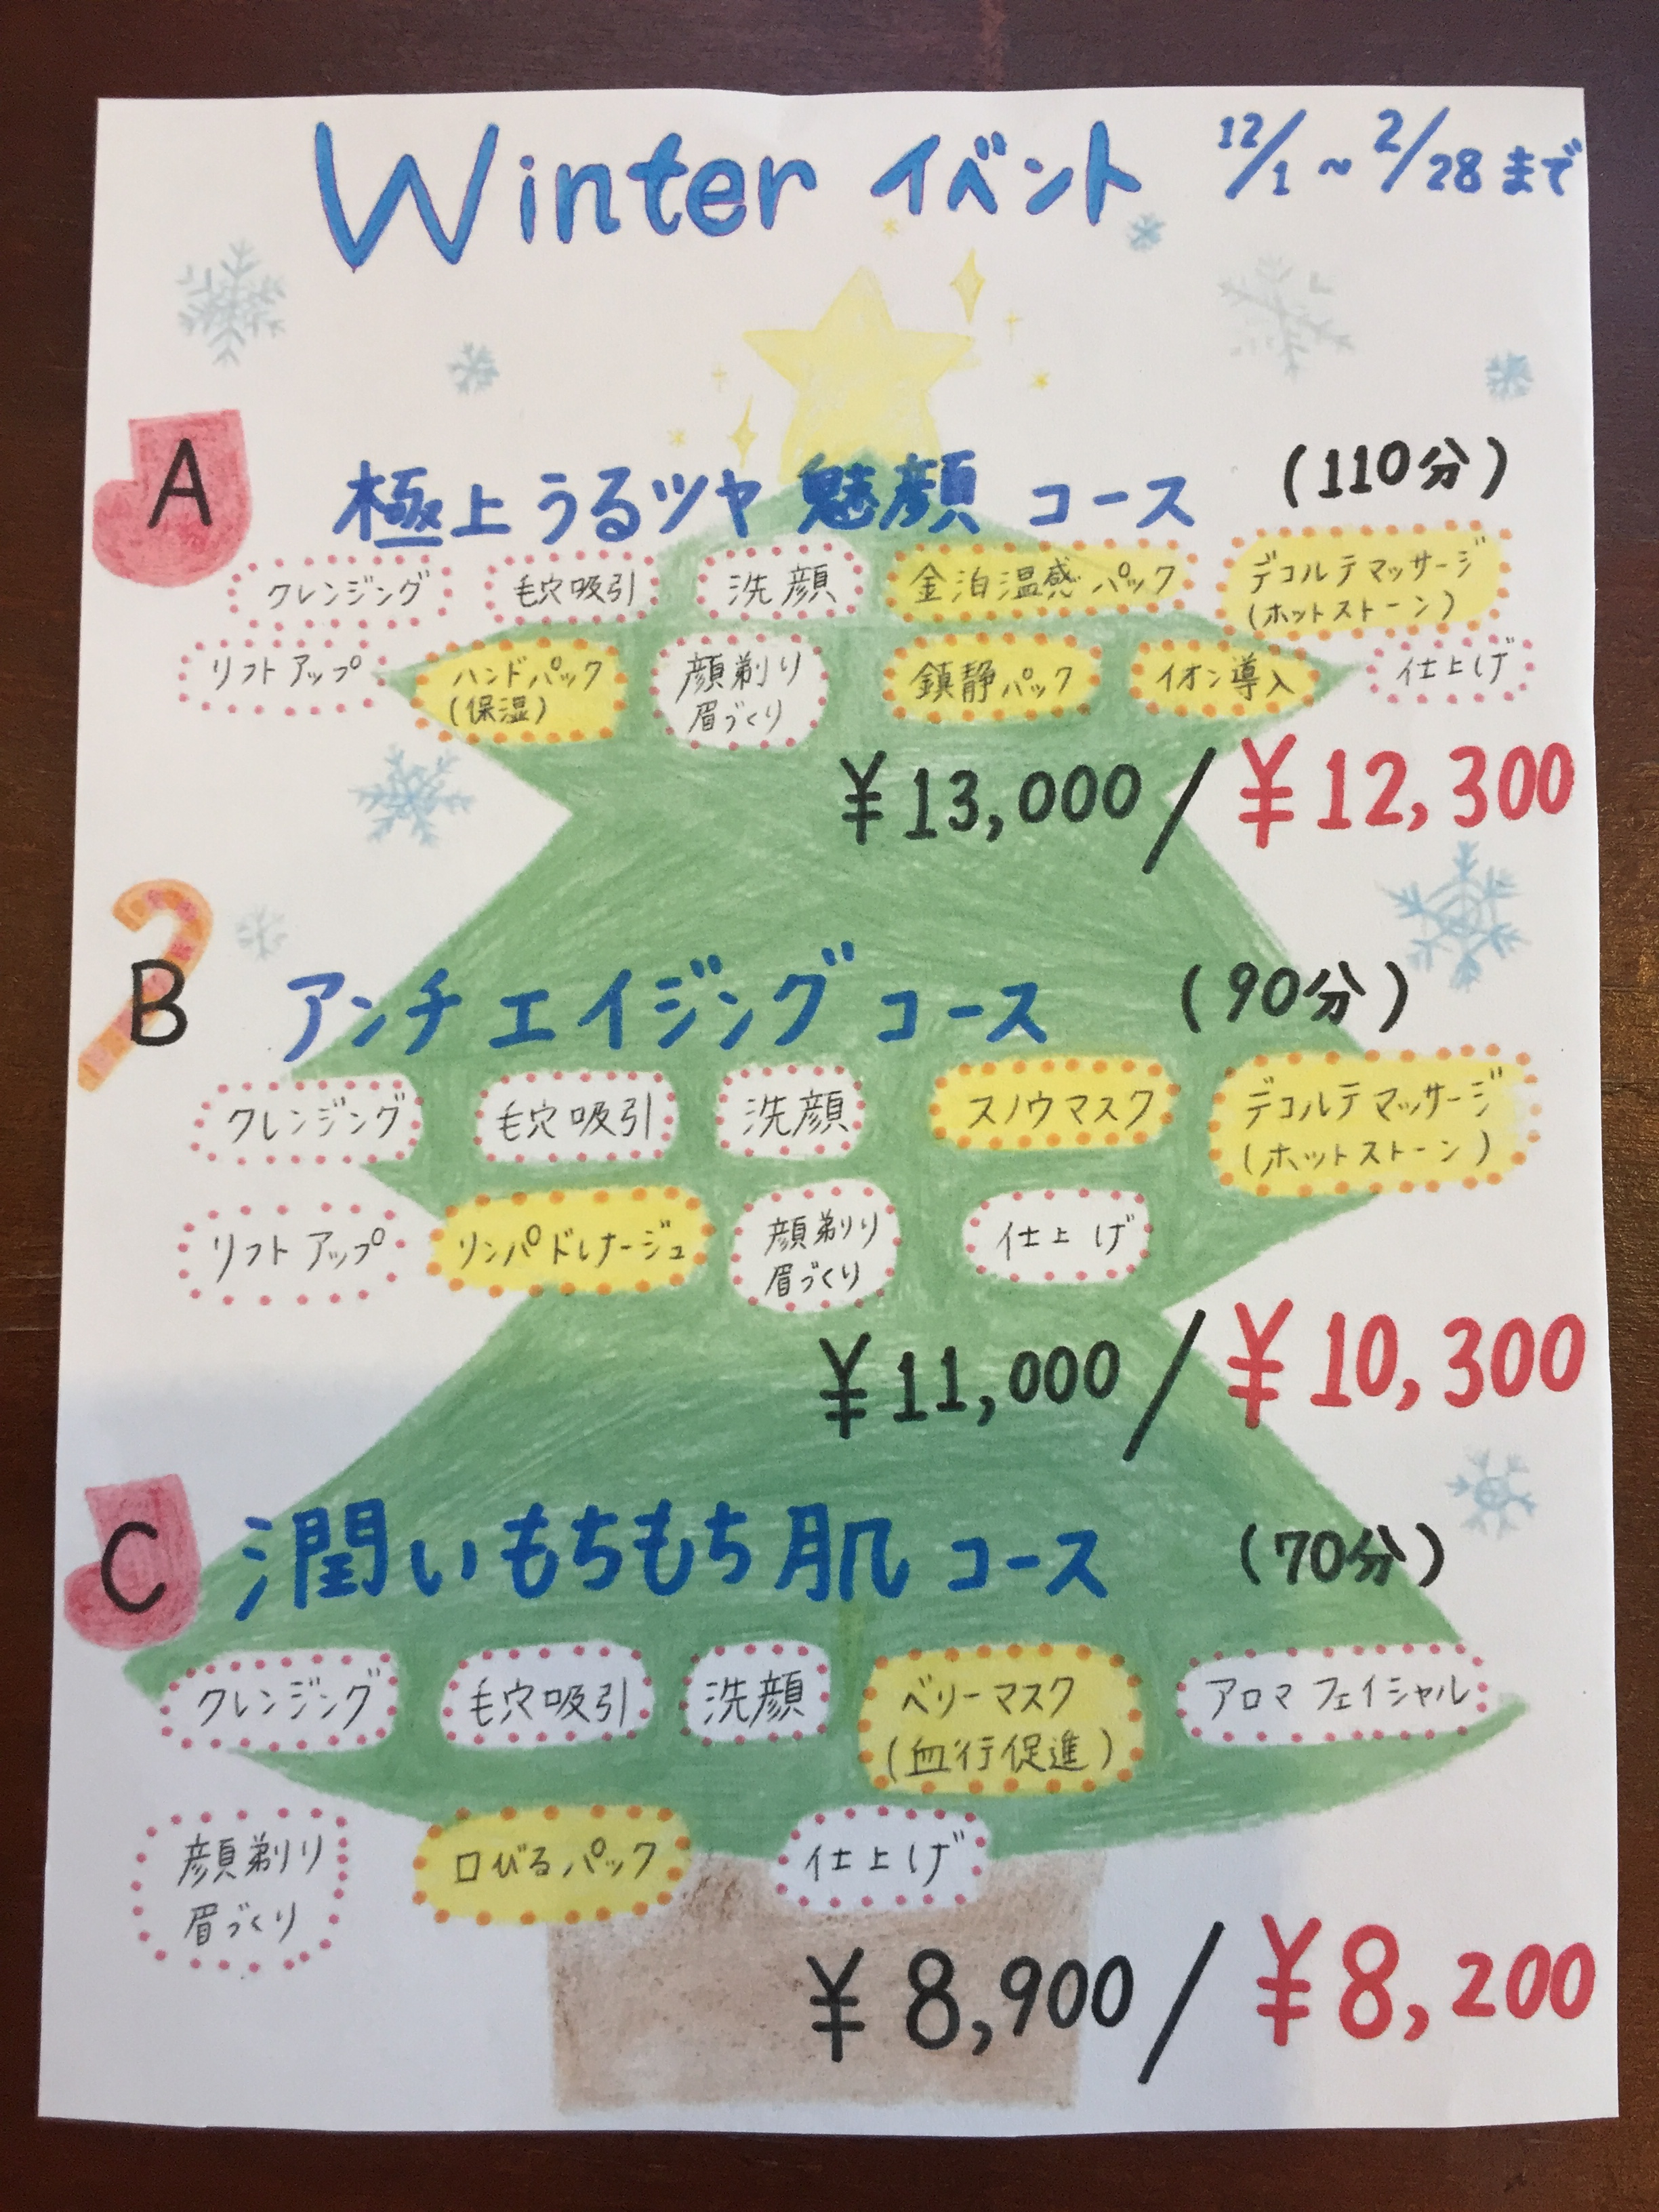 Winter イベント 12/1 ~ 2/28 まで
A 極上うるツヤ魅顔コース (110分)
クレンジング 毛穴吸引 洗顔 金泊温感パック デコルテマッサージ
(ホットストーン)
リフトアップ ハンドパック 顔剃り 鎮静パック イオン導入 仕上げ
(保湿) 眉づくり
¥13,000 / ¥12,300
B アンチエイジングコース (90分)
クレンジング 毛穴吸引 洗顔 スノウマスク デコルテマッサージ
(ホットストーン)
リフトアップ リンパドレナージュ 顔剃り 仕上げ
眉づくり
¥11,000 / ¥10,300
C 潤いもちもち肌コース (70分)
クレンジング 毛穴吸引 洗顔 ベリーマスク アロマフェイシャル
(血行促進)
顔剃り 口びるパック 仕上げ
眉づくり
¥8,900 / ¥8,200